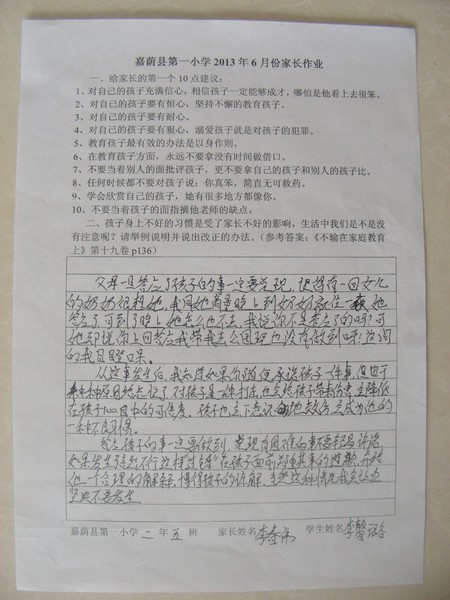 嘉荫县第一小学2013年6月份家长作业
一、给家长的第一个10点建议：
1、对自己的孩子充满信心，相信孩子一定能够成才，哪怕是他看上去很笨。
2、对自己的孩子要有恒心，坚持不懈的教育孩子。
3、对自己的孩子要有耐心。
4、对自己的孩子要有狠心，溺爱孩子就是对子的犯罪。
5、教育孩子最有效的办法是以身作则。
6、在教育孩子方面，永远不要拿没有时间做借口。
7、不要当着别人的面批评孩子，更不要拿自己的孩子和别人的孩子比。
8、任何时候都不要对孩子说：你真笨，简直无可救药。
9、学会欣赏自己的孩子，她有很多地方都像你。
10、不要当着孩子的面指摘他老师的缺点。
二、孩子身上不好的习惯是受了家长不好的影响，生活中我们是不是没
有注意呢？请举例说明并说出改正的办法。（参考答案：《不输在家庭教育
上》第十九卷 p136）
父母一旦答应了孩子的事一定要兑现，记得有一回女儿
的奶奶很想她，我同她商量晚上到奶奶家住一夜，她
答应了，可到了晚上她怎么也不去，我说你不是答应了的吗？可
她却说你上回答应我带我去公园玩也没有做到呀！这问
的我目瞪口呆。
从这事发生后，我知道如果你随便承诺孩子一件事，但由于
种种原因地忘记了，对孩子是一种打击，也会给孩子带来伤害，会降低
在孩子心目中的可信度，孩子也会下意识地效仿，会成为他的
一种不良习惯。
答应孩子的事一定要做到，发现有困难的事不要轻易许诺，
如果发生
在孩子面前
他一个合理的解释，博得孩子的谅解，
坚决不要发生
嘉荫县第一小学 二 年 五 班 家长姓名 学生姓名